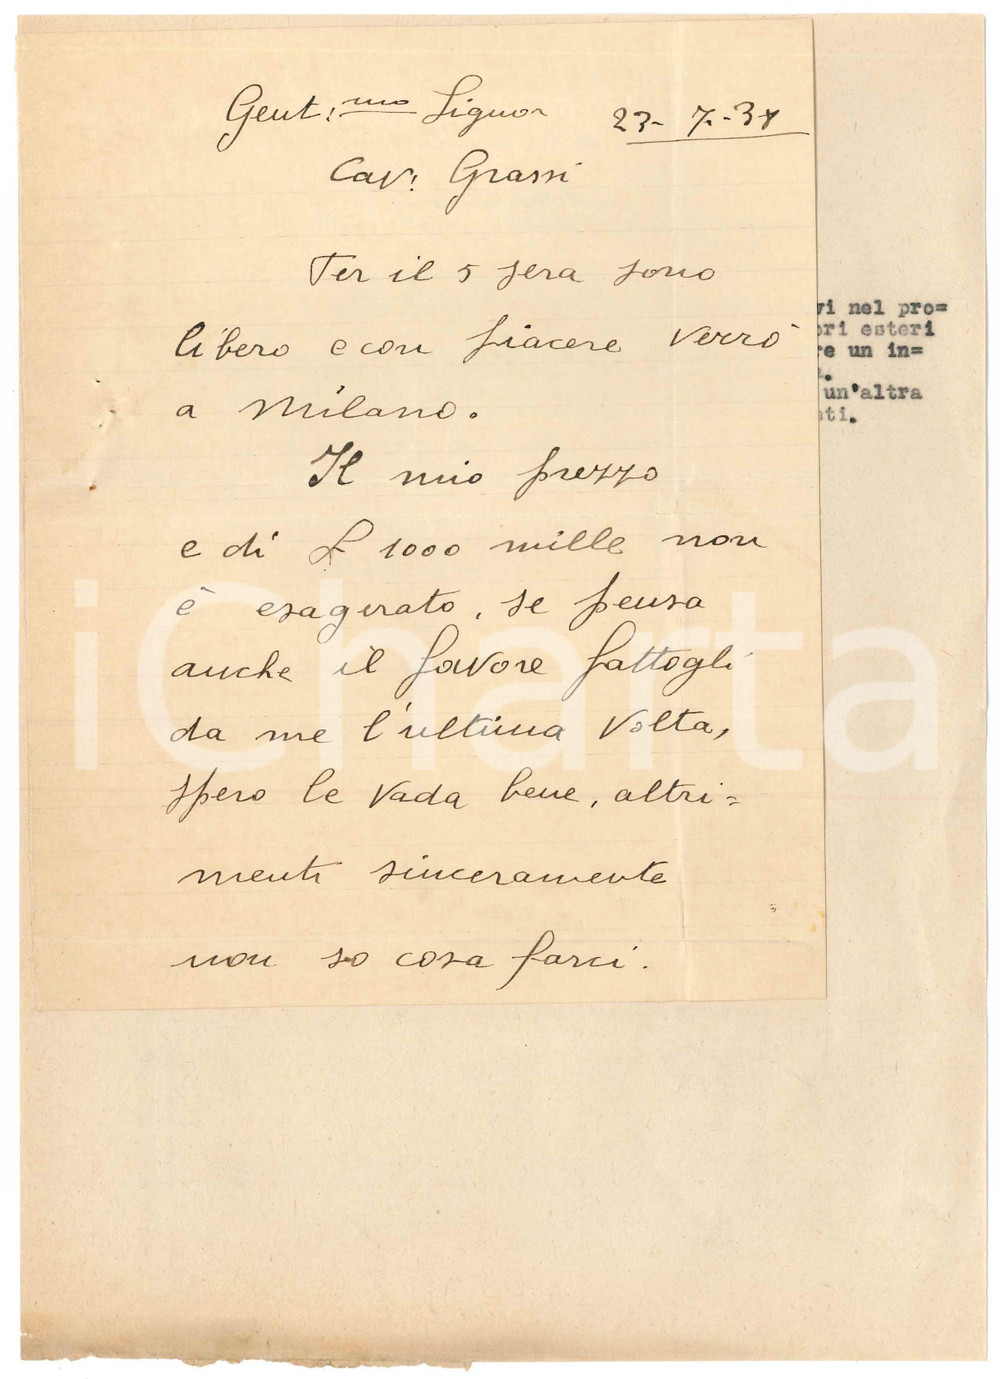 Gent:mo Signor 23-7-38
Cav: Grassi
Per il 5 sera sono
libero e con piacere verrò
a Milano.
Il mio prezzo
e di £ 1000 mille non
è esagerato, se pensa
anche il favore fattogli
da me l'ultima volta,
spero le vada bene, altri=
menti sinceramente
non so cosa farci.
vi nel pro=
ori esteri
re un in=
un'altra
ti.
iCharta